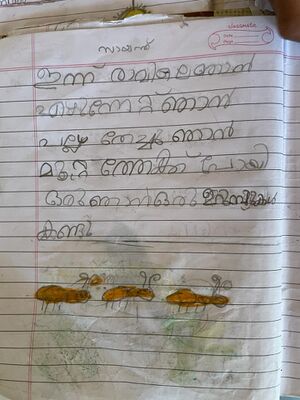 classmate
Date
Page
സായന്ത്
ഇന്ന് രാവിലെ ഞാൻ
എഴുന്നേറ്റ് ഞാൻ
പല്ലു തേച്ചു ഞാൻ
മുറ്റത്തേക്ക് പോയി
ഒരു ഞാൻ ഒരു ഉറുമ്പുകൾ
കണ്ടു